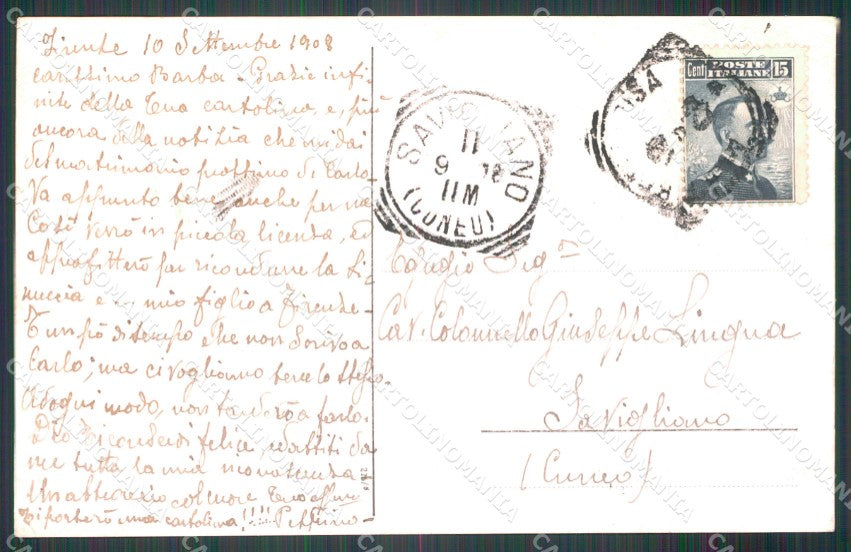 Firenze 10 Settembre 1908
carissimo Barba - Grazie infi-
nite della tua cartolina, e, più
ancora della notizia che mi dai
del matrimonio prossimo di Carlo.
Va appunto bene, anche per me
Così verrò in piccola licenza, ed
approfitterò per ricondurre la
e mio figlio a Firenze-
È un pò di tempo che non scrivo a
Carlo; ma ci vogliamo bene lo stesso.
Ad ogni modo, non tarderò a farlo.
Dio vi conservi felice, ed
me tutta la mia riconoscenza-
Un abbraccio col cuore tuo
Ti porterò una cartolina!!!! Peppino-
SAVIGLIANO
11
9
11M
(CUNEO)
Cent 15
POSTE
ITALIANE
Egregio Sigr
Cav. Colonnello Giuseppe Lingua
Savigliano
(Cuneo)
CARTOLINOMANIA